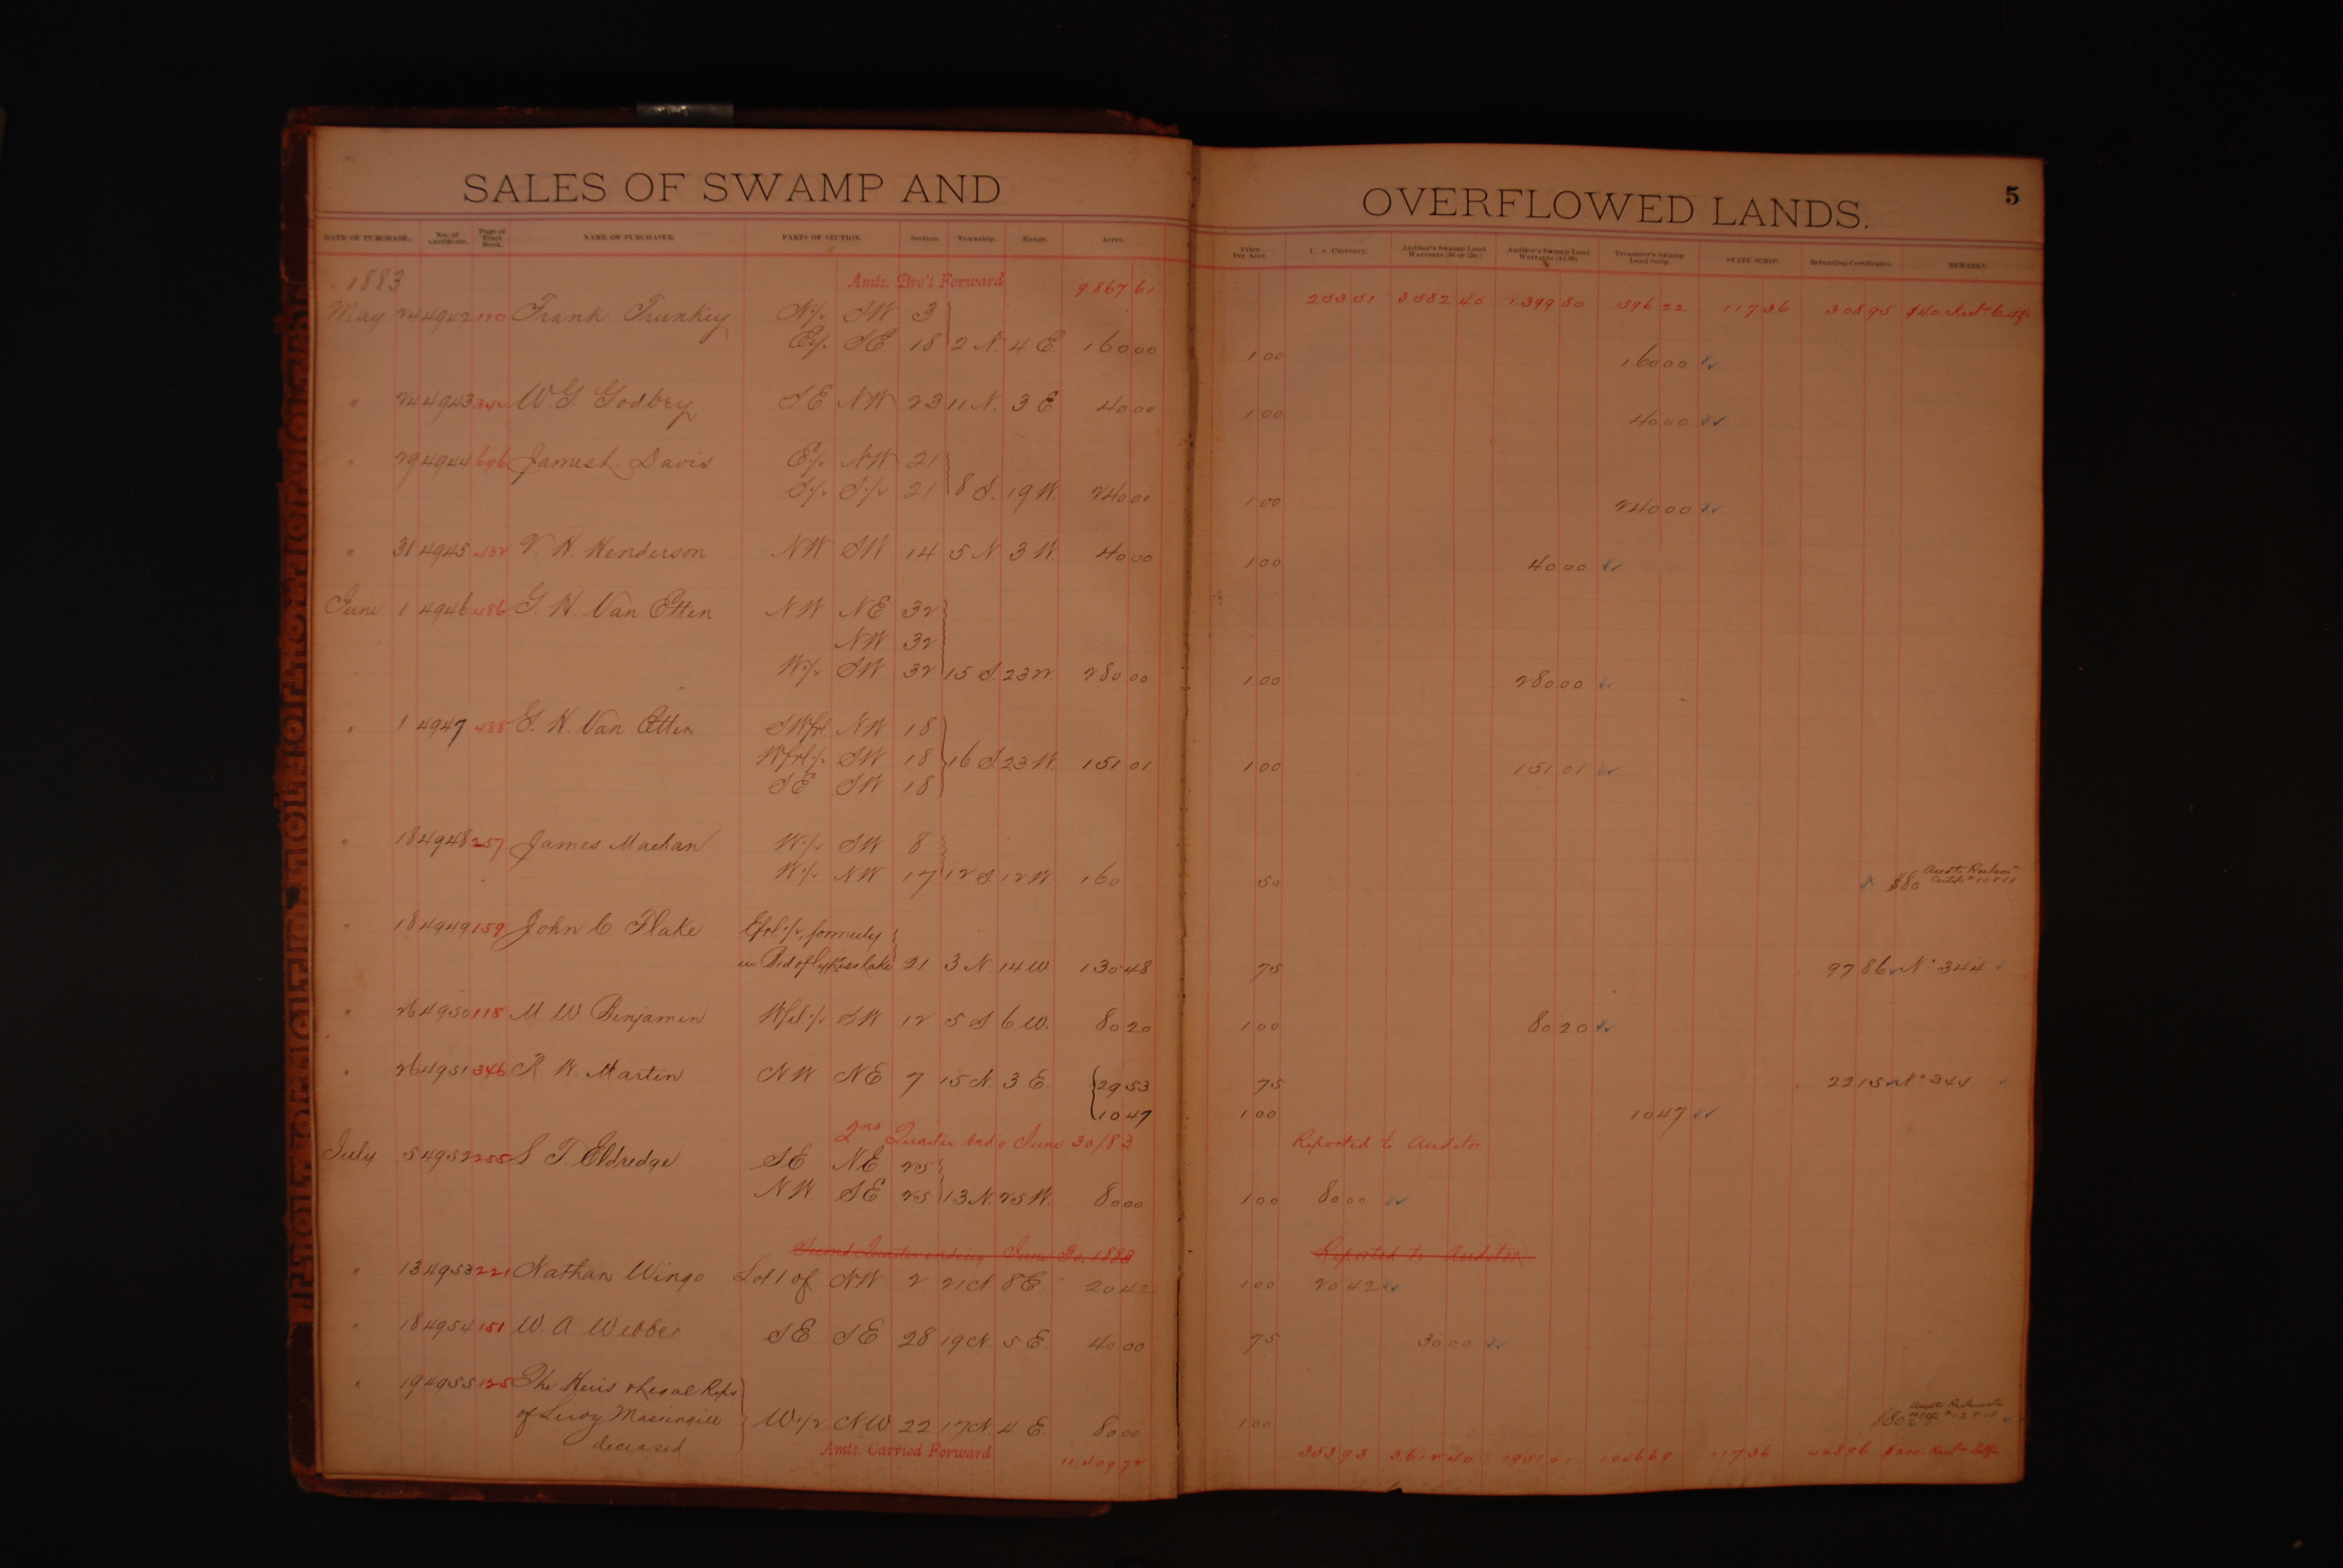 SALES OF SWAMP AND OVERFLOWED LANDS. 5
DATE OF PURCHASE. No. of Certificate. Page of Tract Book. NAME OF PURCHASER. PARTS OF SECTION. Section. Township. Range. Acres. Price Per Acre. U. S. Currency. Auditor's Swamp Land Warrants (50 or 75c.) Auditor's Swamp Land Warrants ($1.00) Treasurer's Swamp Land Scrip. STATE SCRIP. Refunding Certificates. REMARKS.
1883 Amts. Bro't Forward 9.867 61 253 51 3.582 40 1.399 80 596 22 117 36 308.95 $40.
May 24 4942 110 Frank Trunkey N½ SW 3
E½ SE 18 2 N. 4 E 160 00 1 00 160 00
" 24 4943 352 W. G. Godbey SE NW 23 11 N. 3 E 40 00 1 00 40 00
" 29 4944 696 James L. Davis E½ NW 21
S½ S½ 21 8 S. 19 W. 240 00 1 00 240 00
" 31 4945 432 V. H. Henderson NW SW 14 5 N 3 W. 40 00 1 00 40 00
June 1 4946 486 G. H. Van Etten NW NE 32
NW 32
W½ SW 32 15 S. 23 W. 280 00 1 00 280 00
" 1 4947 488 G. H. Van Etten SWfrl. NW 18
Wfrl½ SW 18 16 S. 23 W. 151 01 1 00 151 01
SE SW 18
" 18 4948 257 James Machan W½ SW 8
W½ NW 17 12 S. 12 W 160 50 $80
" 18 4949 159 John C Flake Efrl½, formerly
in Bed of Cypress Lake 21 3 N 14 W 130 48 75 97 86 No 344
" 26 4950 118 M. W Benjamin Wfrl½ SW 12 5 S 6 W. 80 20 1 00 80 20
" 26 4951 346 R. W. Martin NW NE 7 15 N. 3 E. 29 53 75 22 15 No 344
10 47 1 00 10 47
2nd Quarter endg June 30/83 Reported to Auditor
July 5 4952 255 S. T. Eldredge SE NE 25
NW SE 25 13 N. 25 W. 80 00 1 00 80 00
Second Quarter ending June 30, 1883 Reported to Auditor
" 13 4953 221 Nathan Wingo Lot 1 of NW 2 21 N 8 E. 20 42 1 00 20 42
" 18 4954 151 W. A. Webber SE SE 28 19 N 5 E. 40 00 75 30 00
" 19 4955 125 The Heirs & Legal Reps
of Leroy Massingill W½ NW 22 17 N. 4 E 80 00 1 00 $80
deceased
Amts. Carried Forward 11.409 72 353 93 3.612 40 1951 01 1046 69 117 36 428 96 $200.